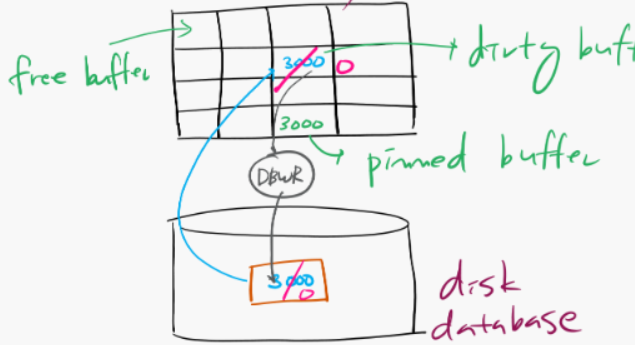 free buffer
3000
0
dirty buff
3000
pinned buffer
DBWR
3000
0
disk
database